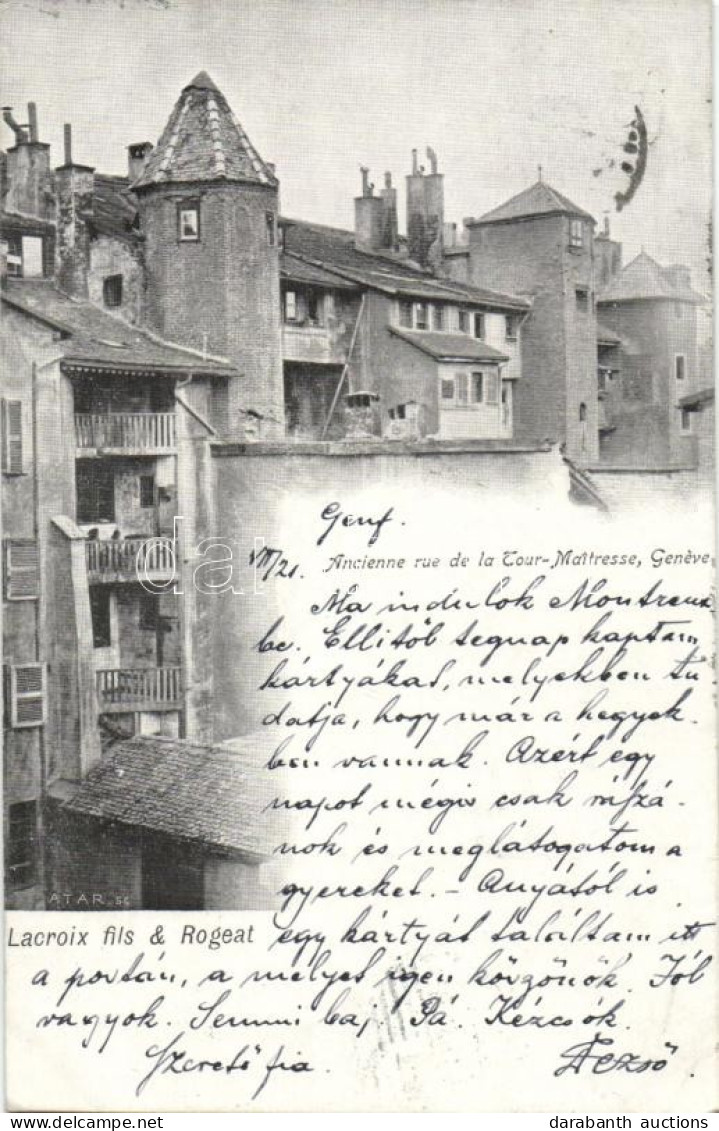 Genf.
VII/21.
Ancienne rue de la Tour-Maîtresse, Genève
Ma indulok Montreux
be. Ellitől tegnap kaptam
kártyákat, melyekben tu
datja, hogy már a hegyek-
ben vannak. Azért egy
napot mégis csak rászá-
nok és meglátogatom a
gyereket. - Anyától is
egy kártyát találtam itt
a portán, a melyet igen köszönök. Jól
vagyok. Semmi baj. Pá. Kézcsók.
Szerető fia Dezső
ATAR SC
Lacroix fils & Rogeat
dar
darabanth auctions